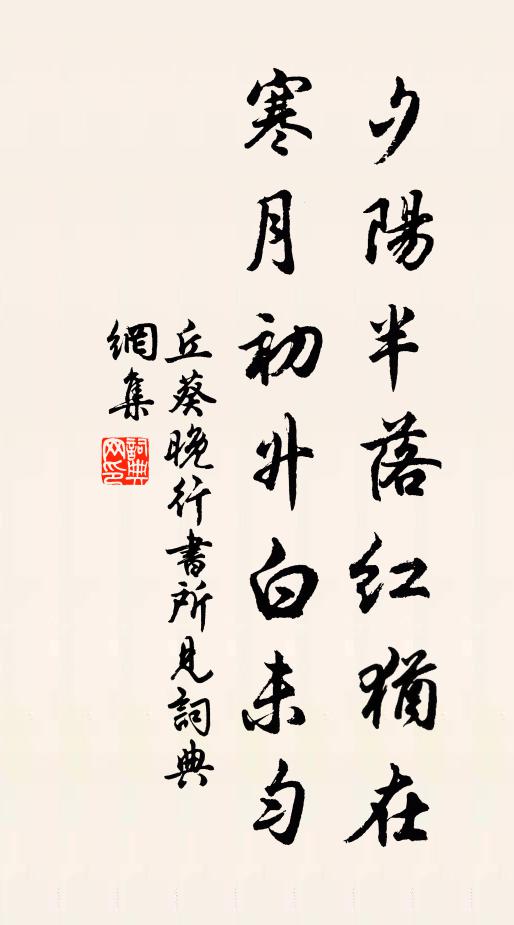 夕陽半落紅猶在
寒月初升白未勻
丘葵晚行書所見詞典
網集
詞典網印